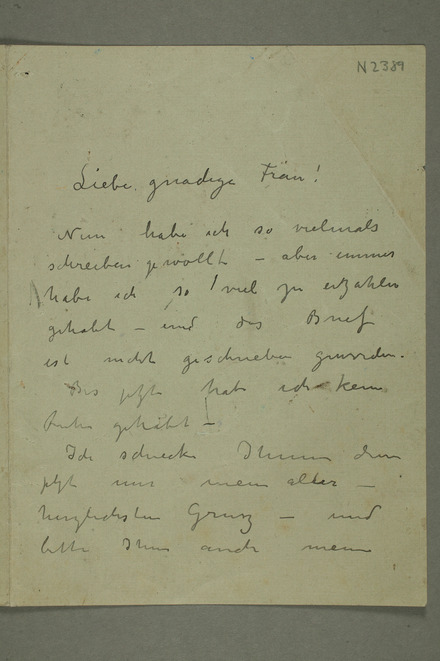 N2389
Liebe, gnädige Frau!
Nun habe ich so vielmals
schreiben gewollt – aber immer
habe ich so viel zu erzählen
gehabt – und der Brief
ist nicht geschrieben geworden.
Bis jetzt habe ich kein
Ruhe gehabt –
Ich schicke Ihnen denn
jetzt nur mein aller –
herzlichsten Grusz – und
bitte Ihnen auch meine